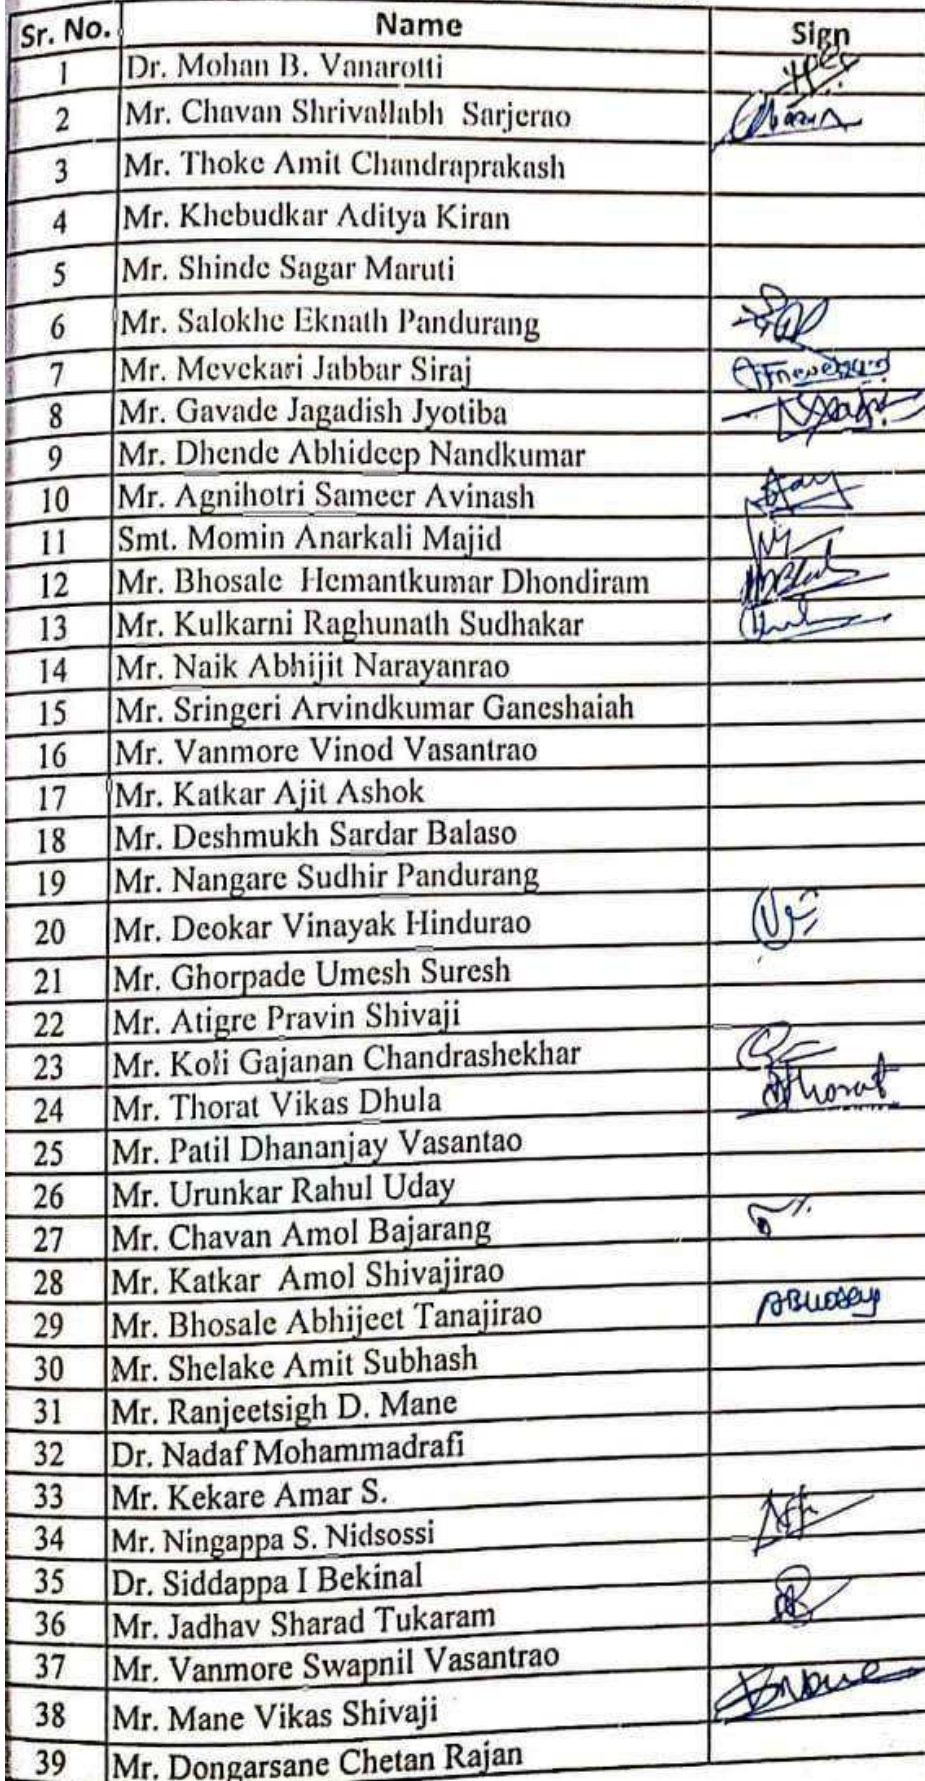 Sr. No. Name Sign
1 Dr. Mohan B. Vanarotti
2 Mr. Chavan Shrivallabh Sarjerao
3 Mr. Thoke Amit Chandraprakash
4 Mr. Khebudkar Aditya Kiran
5 Mr. Shinde Sagar Maruti
6 Mr. Salokhe Eknath Pandurang
7 Mr. Mevekari Jabbar Siraj
8 Mr. Gavade Jagadish Jyotiba
9 Mr. Dhende Abhideep Nandkumar
10 Mr. Agnihotri Sameer Avinash
11 Smt. Momin Anarkali Majid
12 Mr. Bhosale Hemantkumar Dhondiram
13 Mr. Kulkarni Raghunath Sudhakar
14 Mr. Naik Abhijit Narayanrao
15 Mr. Sringeri Arvindkumar Ganeshaiah
16 Mr. Vanmore Vinod Vasantrao
17 Mr. Katkar Ajit Ashok
18 Mr. Deshmukh Sardar Balaso
19 Mr. Nangare Sudhir Pandurang
20 Mr. Deokar Vinayak Hindurao
21 Mr. Ghorpade Umesh Suresh
22 Mr. Atigre Pravin Shivaji
23 Mr. Koli Gajanan Chandrashekhar
24 Mr. Thorat Vikas Dhula
25 Mr. Patil Dhananjay Vasantao
26 Mr. Urunkar Rahul Uday
27 Mr. Chavan Amol Bajarang
28 Mr. Katkar Amol Shivajirao
29 Mr. Bhosale Abhijeet Tanajirao
30 Mr. Shelake Amit Subhash
31 Mr. Ranjeetsigh D. Mane
32 Dr. Nadaf Mohammadrafi
33 Mr. Kekare Amar S.
34 Mr. Ningappa S. Nidsossi
35 Dr. Siddappa I Bekinal
36 Mr. Jadhav Sharad Tukaram
37 Mr. Vanmore Swapnil Vasantrao
38 Mr. Mane Vikas Shivaji
39 Mr. Dongarsane Chetan Rajan